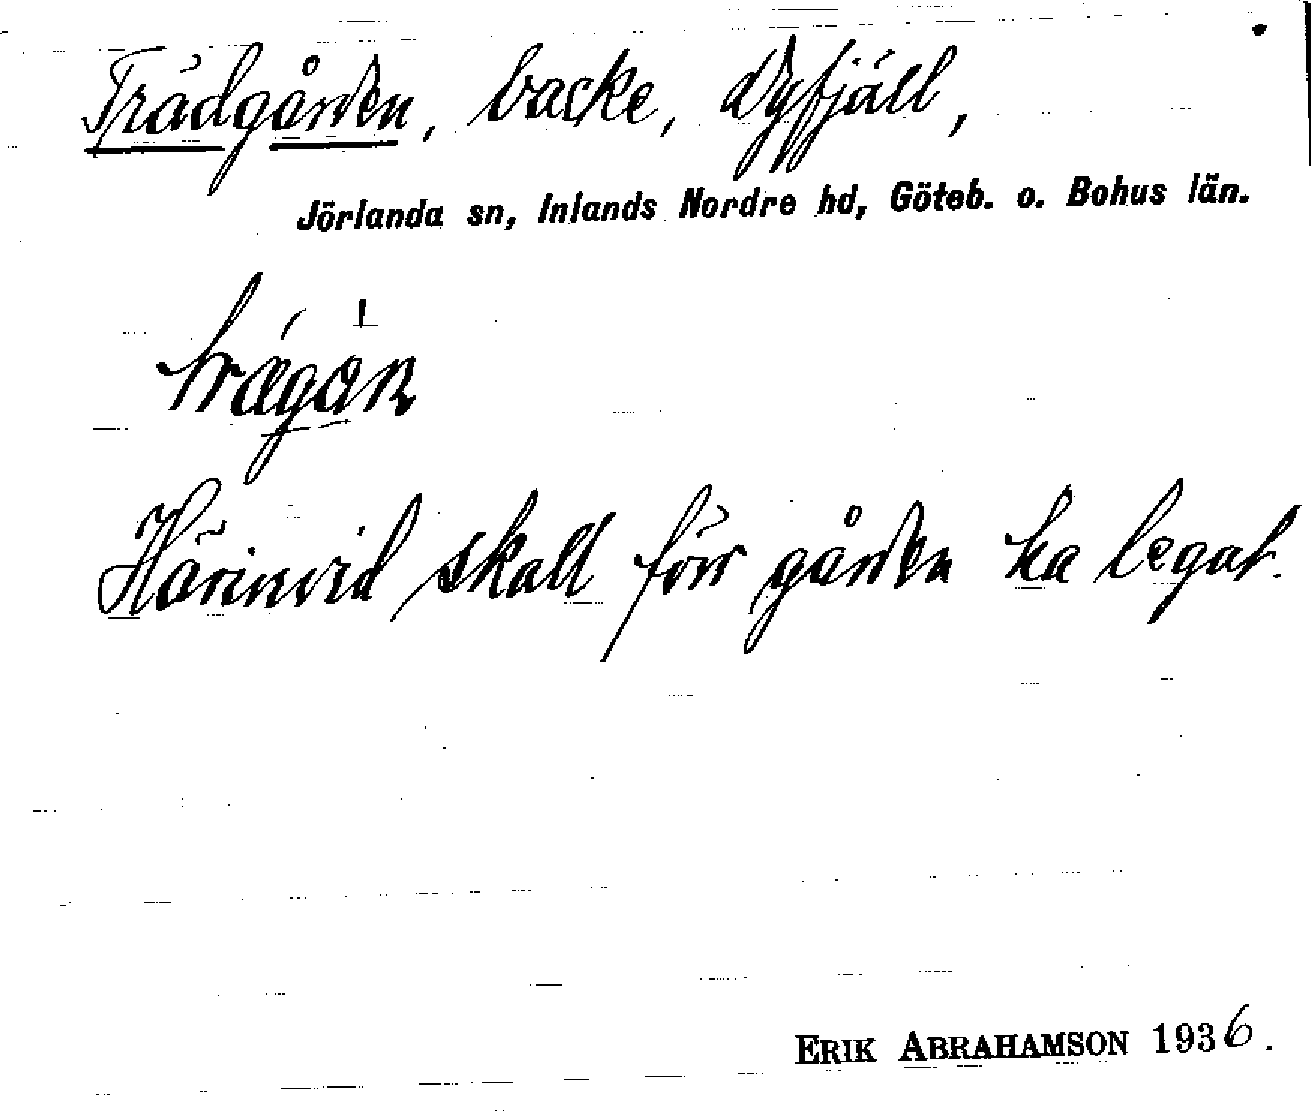 Trädgården, backe, Dyfjäll,
Jörlanda sn, Inlands Nordre hd, Göteb. o. Bohus län.
Härinvid skall förr gården ha legat.
ERIK ABRAHAMSON 1936.